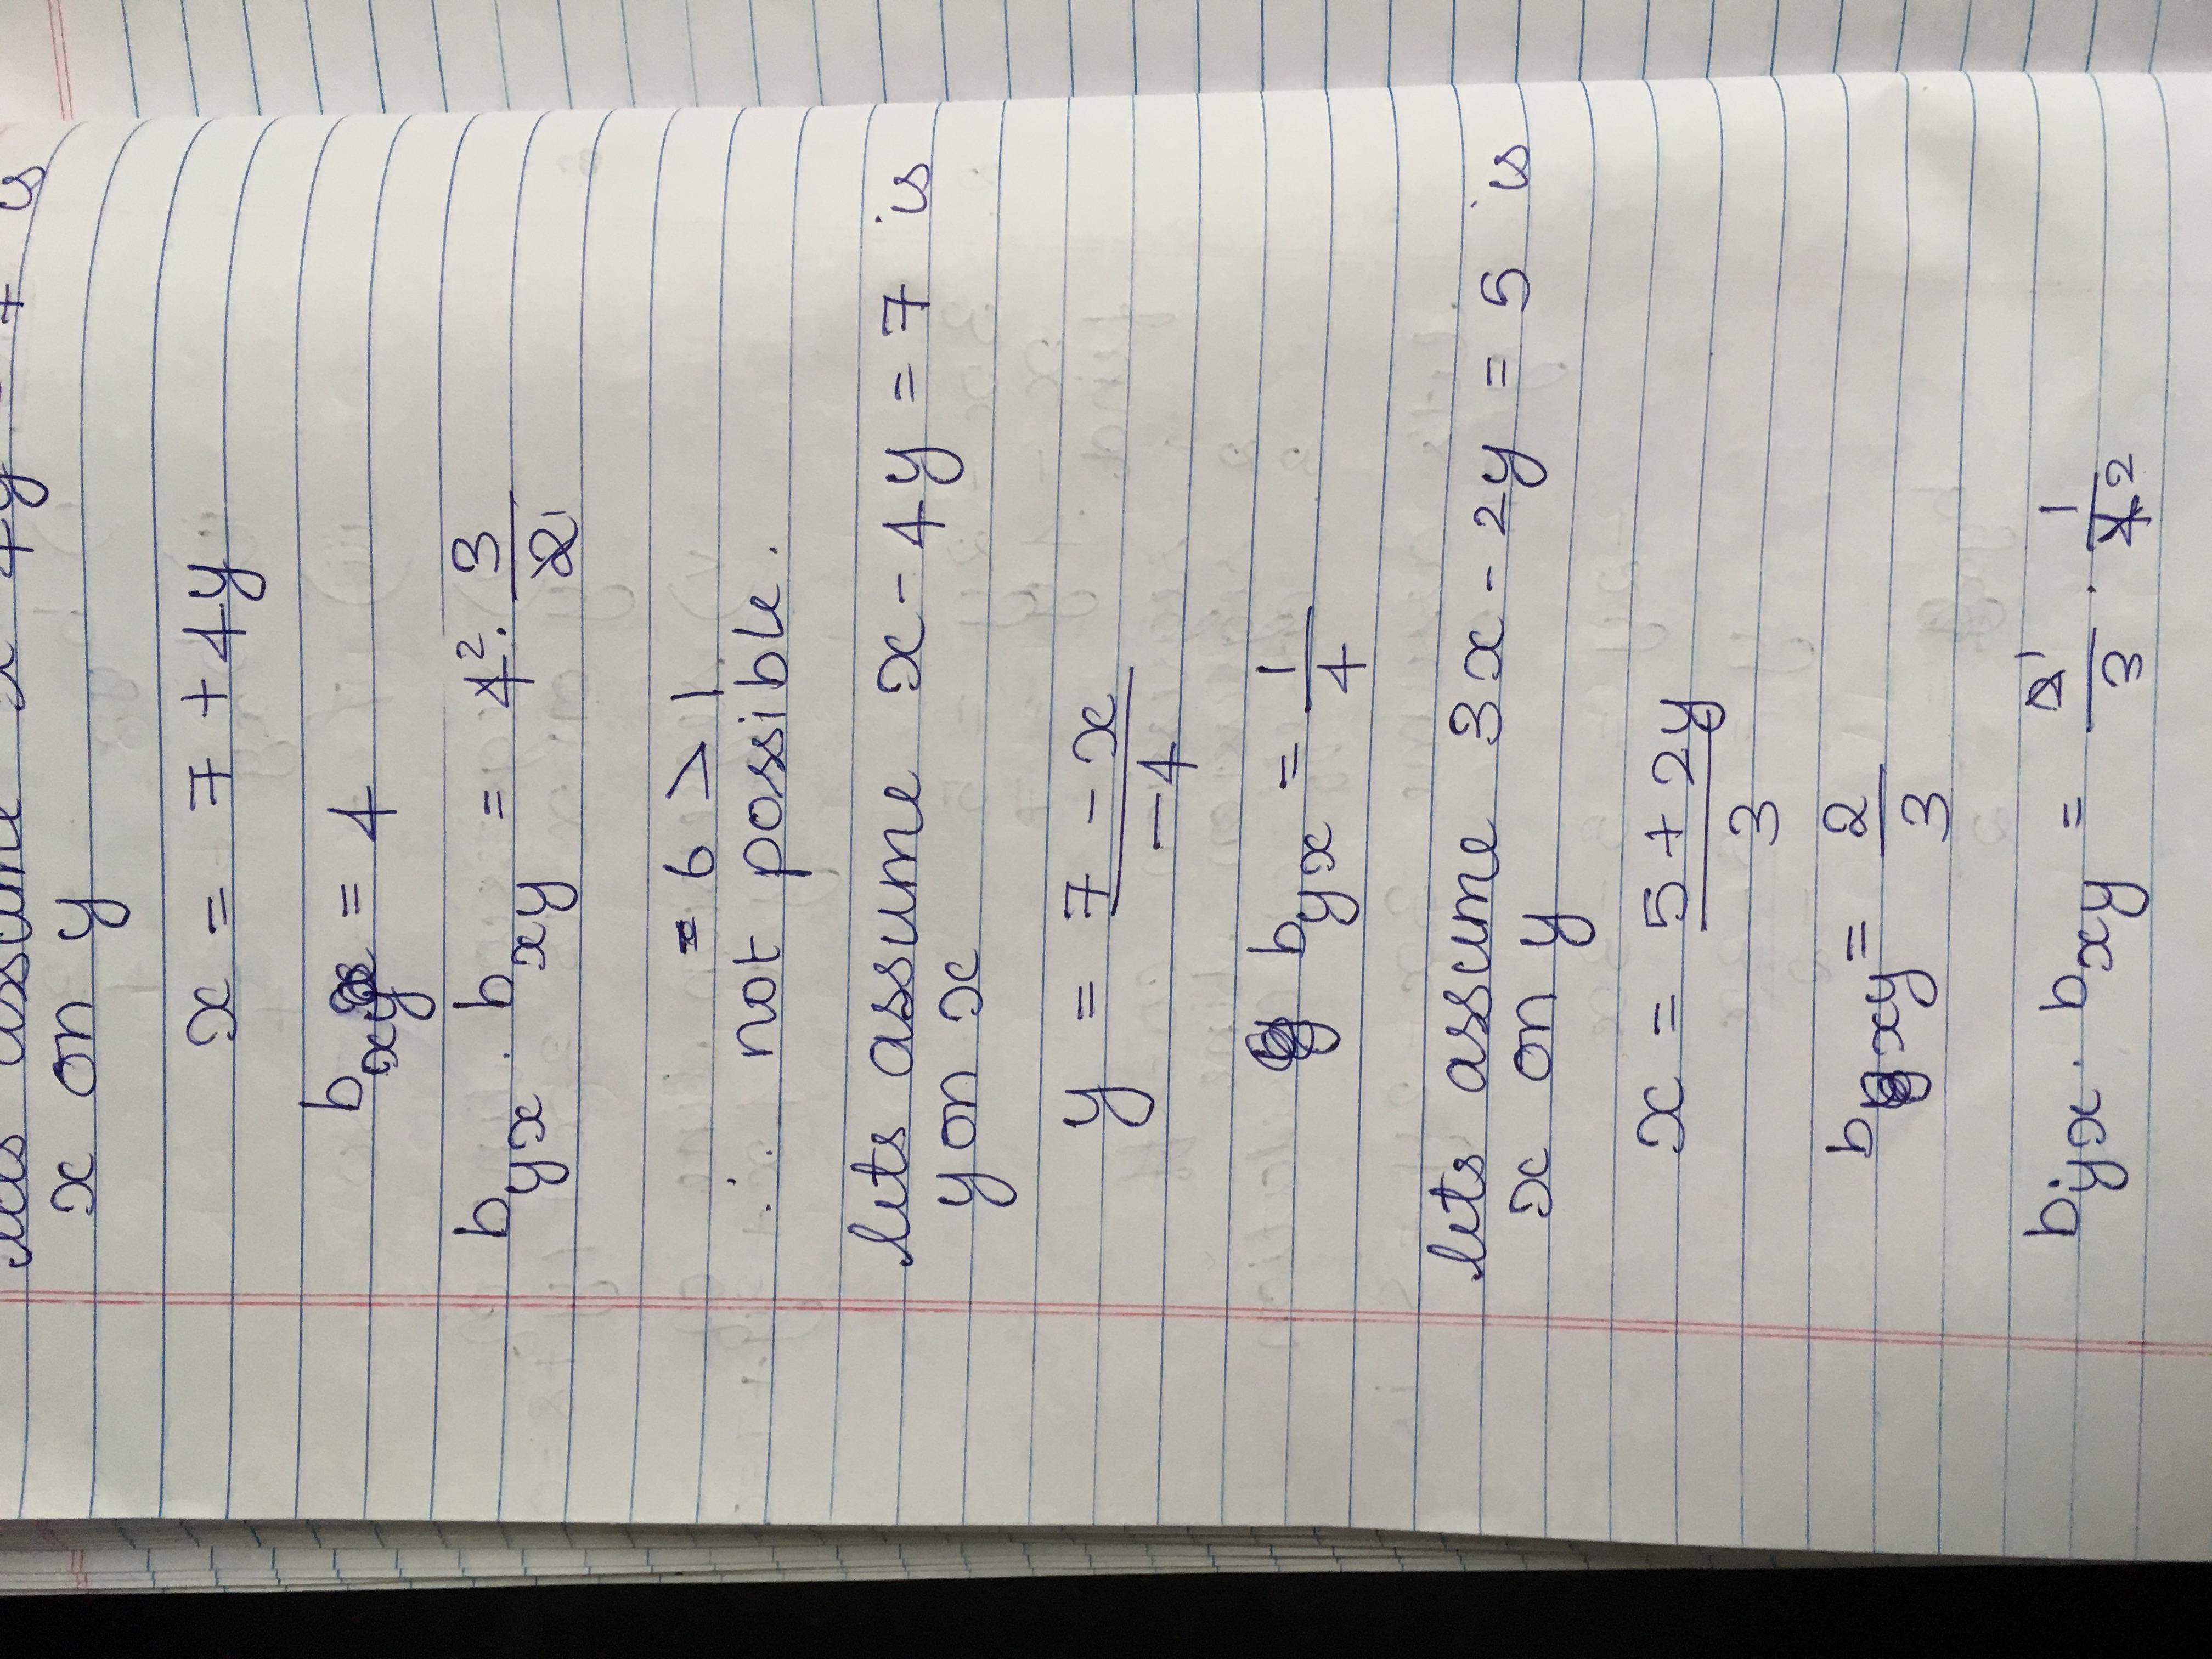 lets assume x - 4y = 7 is
x on y
x = 7 + 4y
b_xy = 4
b_yx . b_xy = 4² . 3/2 1
= 6 > 1
∴ not possible.
lets assume x - 4y = 7 is
y on x
y = 7 - x / -4
b_yx = 1/4
lets assume 3x - 2y = 5 is
x on y
x = 5 + 2y / 3
b_xy = 2/3
b_yx . b_xy = 2 1/3 . 1/4 2